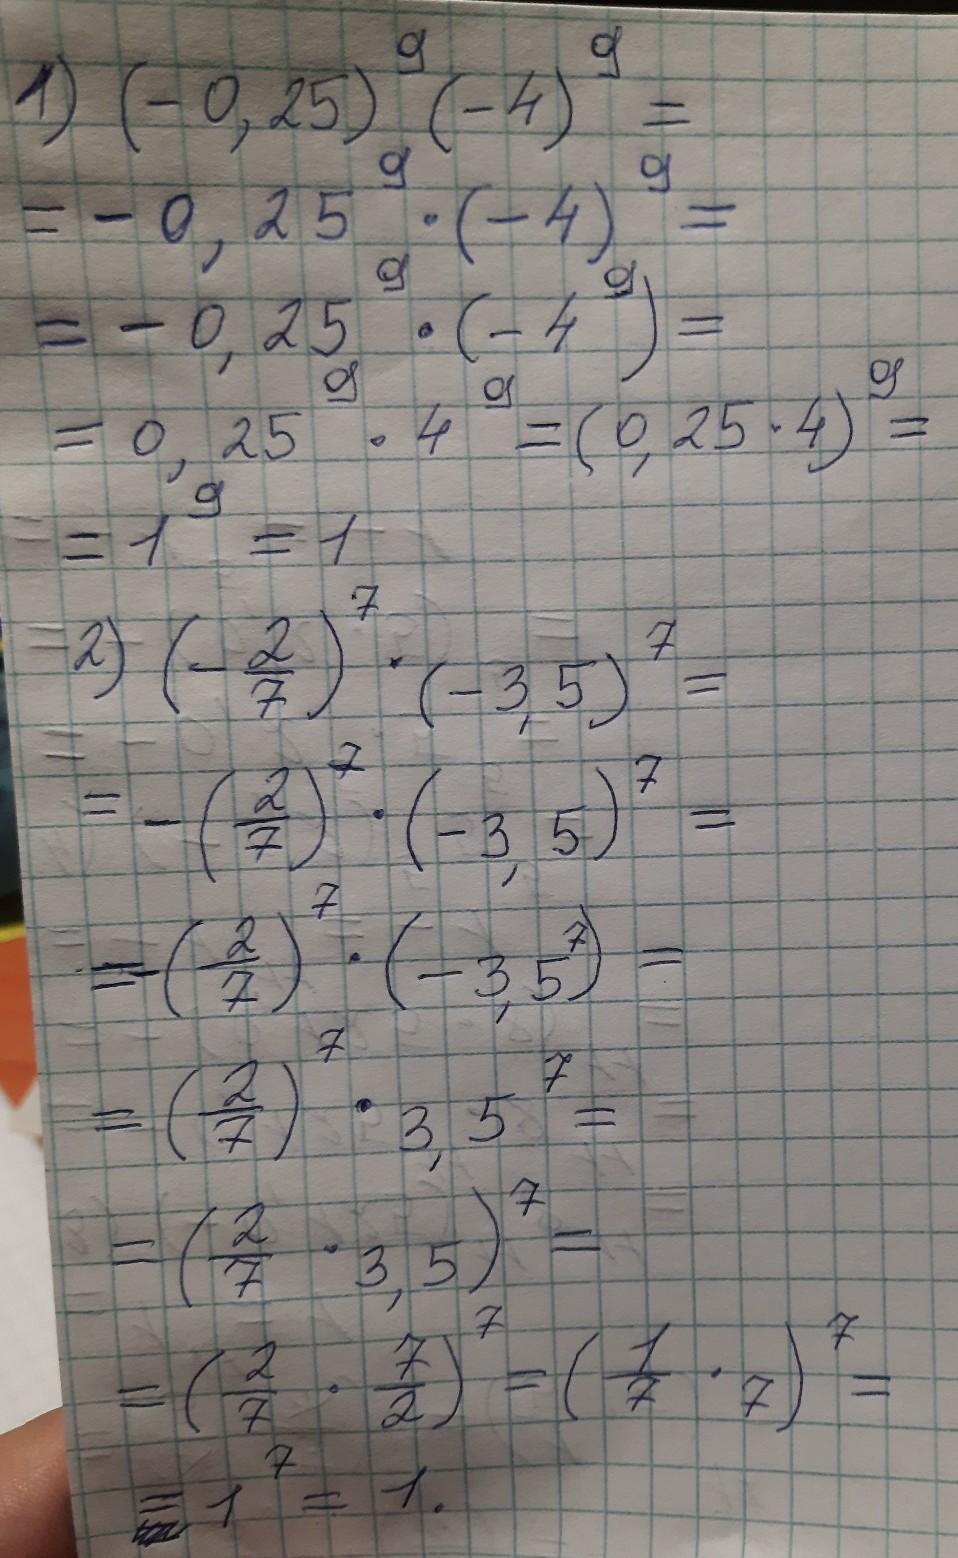 1) (-0,25)⁹ (-4)⁹ =
= -0,25⁹ · (-4)⁹ =
= -0,25⁹ · (-4⁹) =
= 0,25⁹ · 4⁹ = (0,25 · 4)⁹ =
= 1⁹ = 1
2) (-2/7)⁷ · (-3,5)⁷ =
= -(2/7)⁷ · (-3,5)⁷ =
= -(2/7)⁷ · (-3,5⁷) =
= (2/7)⁷ · 3,5⁷ =
= (2/7 · 3,5)⁷ =
= (2/7 · 7/2)⁷ = (1/7 · 7)⁷ =
= 1⁷ = 1.